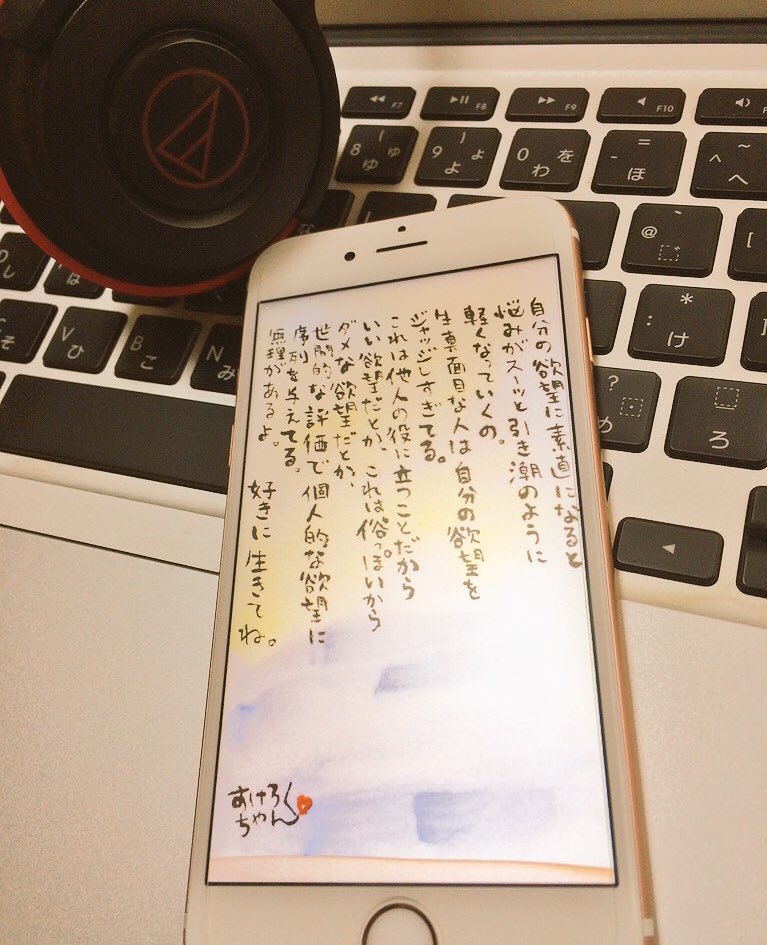 自分の欲望に素直になると
悩みがスーッと引き潮のように
軽くなっていくの。
生真面目な人は自分の欲望を
ジャッジしすぎてる。
これは他人の役に立つことだから
いい欲望だとか、これは俗っぽいから
ダメな欲望だとか、
世間的な評価で個人的な欲望に
序列を与えてる。
無理があるよ。 好きに生きてね。
すけろく
ちゃん
F7
F8
F9
F10
( 8 ゅ ゆ
) 9 ょ よ
0 を わ
= - ほ
~ ^ へ
` @ ゛
[
* : け
? め
ろ
D し
は
C そ
V ひ
B こ
N み
◀